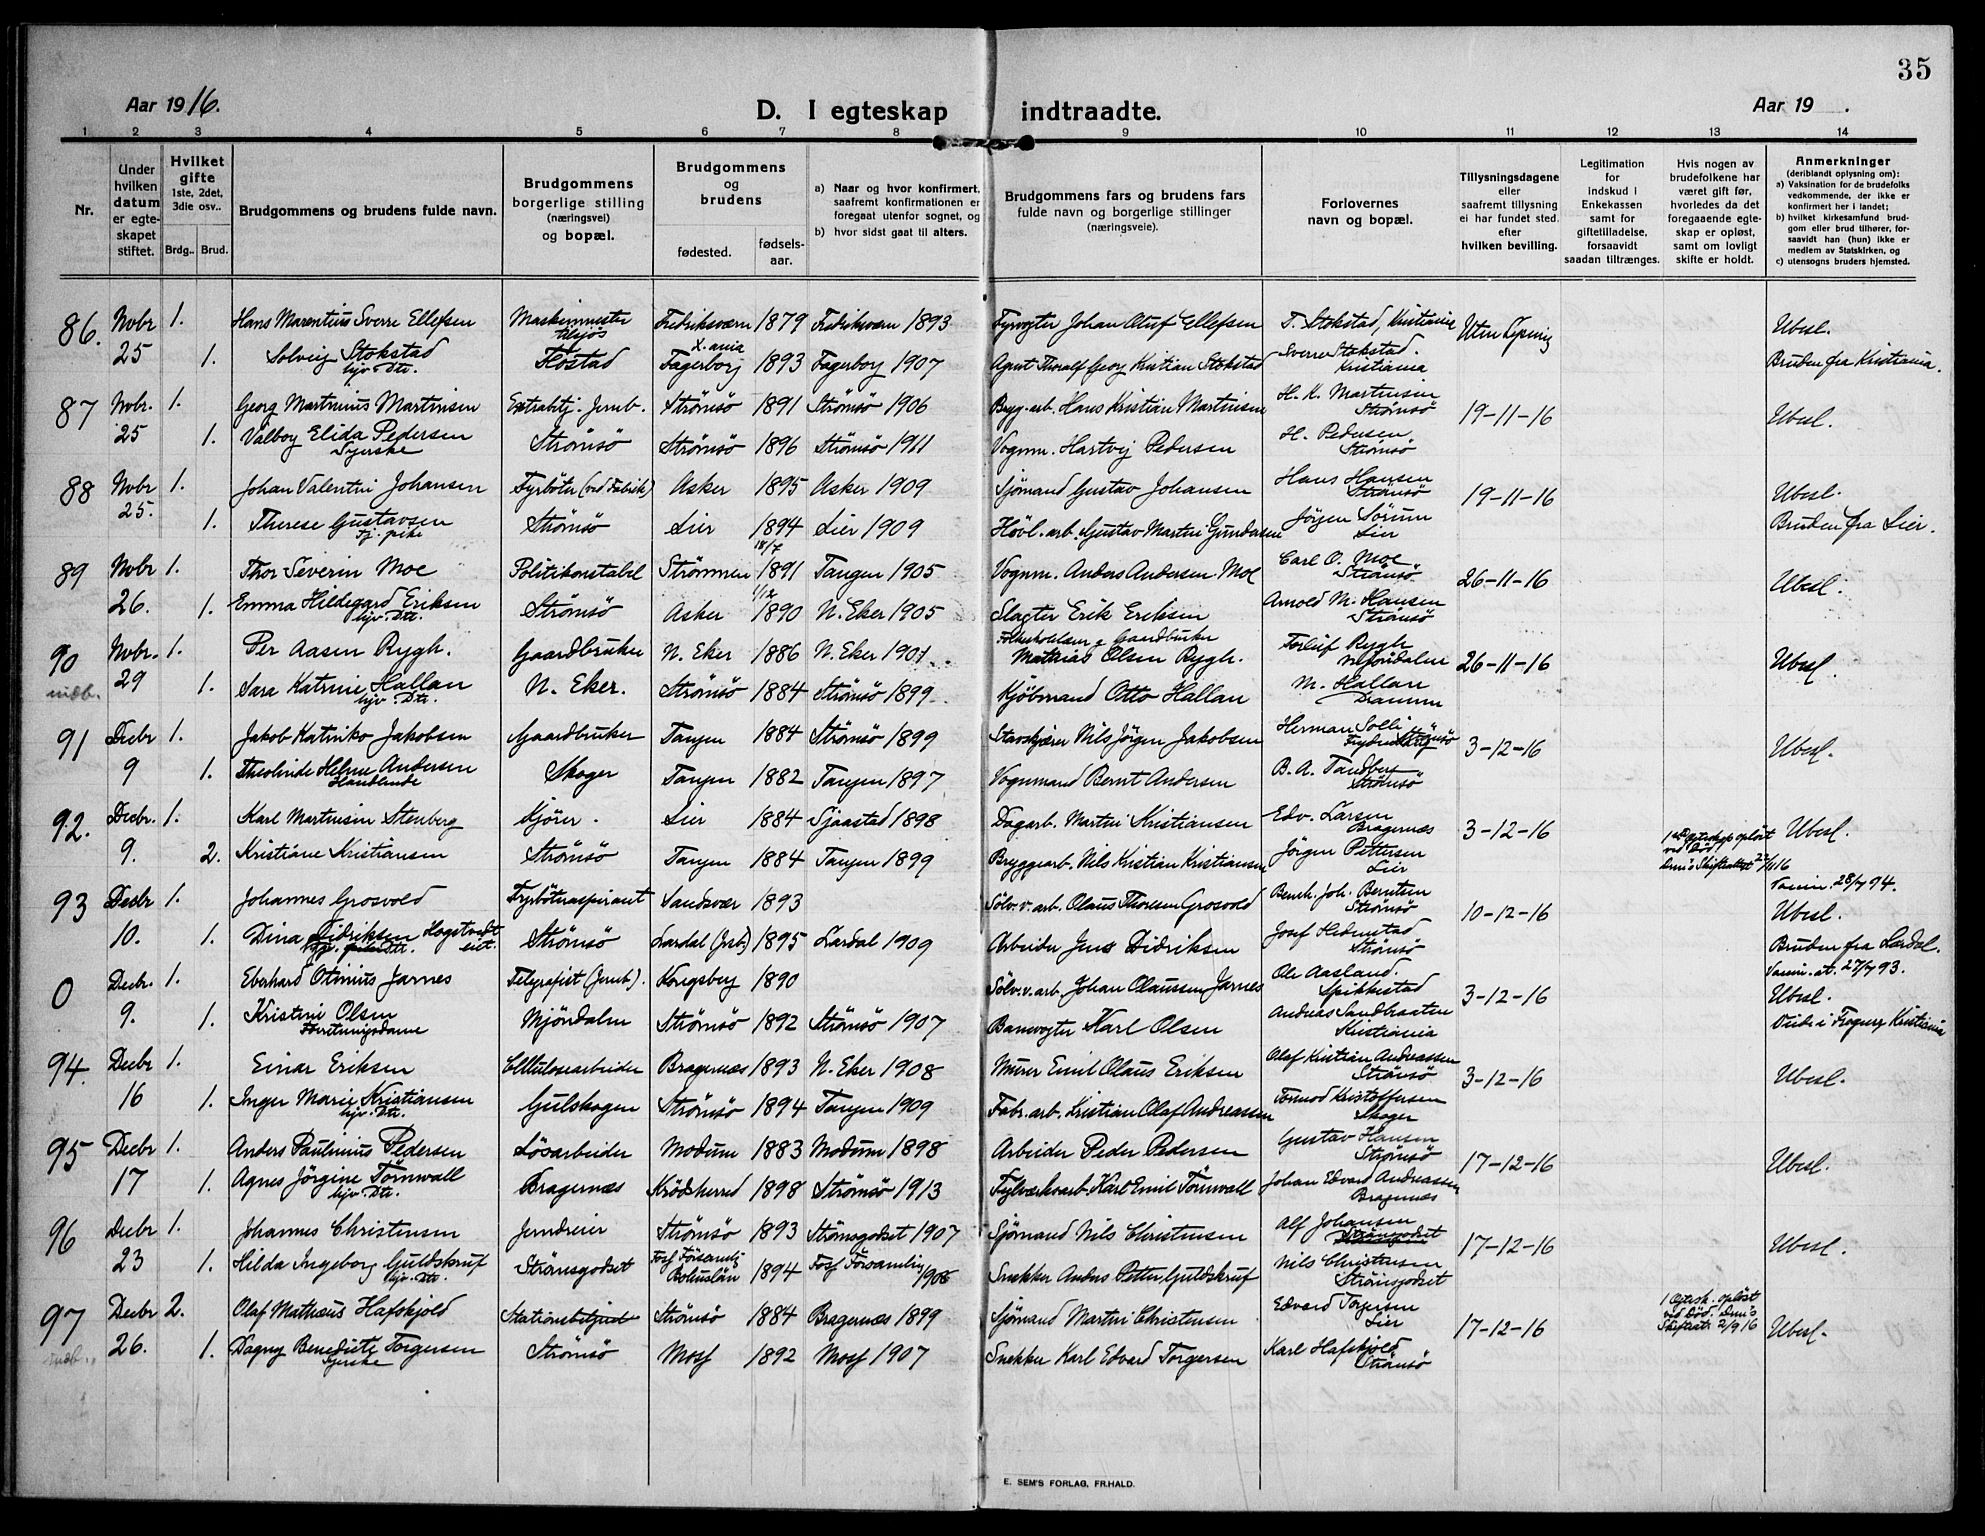 35
Aar 1916.
D. I egteskap indtraadte.
Aar 19 .
1 2 3 4 5 6 7 8 9 10 11 12 13 14
Nr.
Under hvilken datum er egteskapet stiftet.
Hvilket gifte 1ste, 2det, 3die osv..
Brdg.. Brud.
Brudgommens og brudens fulde navn.
Brudgommens borgerlige stilling (næringsvei) og bopæl.
Brudgommens og brudens
fødested. fødselsaar.
a) Naar og hvor konfirmert, saafremt konfirmationen er foregaat utenfor sognet, og
b) hvor sidst gaat til alters.
Brudgommens fars og brudens fars fulde navn og borgerlige stillinger (næringsveie).
Forlovernes navn og bopæl.
Tillysningsdagene eller saafremt tillysning ei har fundet sted. efter hvilken bevilling.
Legitimation for indskud i Enkekassen samt for giftetilladelse, forsaavidt saadan tiltrænges.
Hvis nogen av brudefolkene har været gift før, hvorledes da det foregaaende egteskap er opløst, samt om lovligt skifte er holdt.
Anmerkninger (deriblandt oplysning om):
a) Vaksination for de brudefolks vedkommende, der ikke er konfirmert her i landet;
b) hvilket kirkesamfund brudgom eller brud tilhører, forsaavidt han (hun) ikke er medlem av Statskirken, og
c) utensogns bruders hjemsted.
86. Novbr 1. Hans Marentius Sverre Ellefsen Maskinmester Fredriksværn 1879 Fredriksværn 1893 Fyrvogter Johan Oluf Ellefsen T. Stokstad, Kristiania Ubesl.
25 1. Solveig Stokstad hjv. Dtr. Fagerborg X.ania 1893 Fagerborg 1907 Agent Thoralf Georg Kristian Stokstad Sverre Stokstad. Kristiania Bruden fra Kristiania.
87 Novbr. 1. Georg Martinius Martinsen Extrabitj. Jernb. Strømsö 1891 Strömsö 1906 Bryg.arb. Hans Kristian Martinsen H. K. Martinsen Strömsö 19-11-16 Ubesl.
25 1. Valborg Elida Pedersen Syerske Strömsö Strömsö 1896 Strömsö 1911 Vognm. Hartvig Pedersen H. Pedersen Strömsö
88 Novbr 1. Johan Valentin Johansen Fyrböter (ved Fabrik) Asker 1895 Asker 1909 Sjömand Gustav Johansen Hans Hansen Strömsö 19-11-16 Ubesl.
25. 1. Therese Gustavsen Tj. pike Strömsö Lier 1894 Lier 1909 Hövl.arb. Gustav Martin Gundersen Jörgen Sörum Lier Bruden fra Lier.
89 Novbr 1. Thor Severin Moe Politikonstabel Strömmen 18/7 1891 Tangen 1905 Vognm. Anders Andersen Moe Carl O. Moe Strömsö 26-11-16 Ubesl.
26. 1. Emma Hildegard Eriksen hjv. Dtr. Strömsö Asker 1/12 1890 N. Eker 1905 Slagter Erik Eriksen Arnold M. Hansen Strömsö
90 Novbr. 1. Per Aasen Rygh. Gaardbruker N. Eker 1886 N. Eker 1901. Gaardbruker Mathias Olsen Rygh. Torleif Rygh Mjöndalen 26-11-16 Ubesl.
indb. 29 1. Sara Katrine Hallan hjv. Dtr. N. Eker. Strömsö 1884 Strömsö 1899. Kjöbmand Otto Hallan M. Hallan Drammen
91 Decbr 1. Jakob Katinko Jakobsen Gaardbruker Tangen 1884 Strömsö 1899 Stavskjærer Nils Jörgen Jakobsen Herman Solli Strömsö 3-12-16 Ubesl.
9 1. Theolinde Helene Andersen Skoger Tangen 1882 Tangen 1897 Vognmand Bernt Andersen B. A. Tandberg Strömsö
92. Decbr. 1. Karl Martinsen Stenberg Kjörer. Lier 1884 Sjaastad 1898 Dagarb. Martin Kristiansen Edv. Larsen Bragernæs 3-12-16 Ubesl.
9. 2. Kristiane Kristiansen Strömsö Tangen 1884 Tangen 1899 Bryggearb. Nils Kristian Kristiansen Jörgen Pettersen Lier 1ste Egteskap oplöst ved Död.
93 Decbr 1. Johannes Grosvold Fyrböteraspirant Sandsvær 1893 Sölv.v.arb. Olaus Thoresen Grosvold Bernh. Joh. Berntsen Strömsö 10-12-16 Ubesl.
10. 1. Dina Didriksen Hogstvedt Strömsö Lardal (Jrlsb.) 1895 Lardal 1909 Arbeider Jens Didriksen Josef Hedenstad Strömsö Bruden fra Lardal.
0 Decbr. 1. Eberhard Otinius Jarnes Telegrafist (Jernb.). Kongsberg 1890 Sölv.v.arb. Johan Olaussen Jarnes Ole Aasland. Spikkestad 3-12-16 Ubesl.
9. 1. Kristine Olsen Forretningsdame Mjöndalen Strömsö 1892 Strömsö 1907 Banevogter Karl Olsen Andreas Sandbraaten Kristiania
94. Decbr 1. Einar Eriksen Cellulosearbeider Bragernæs 1893 N. Eker 1908 Murer Emil Olaus Eriksen Olaf Kristian Andreassen Strömsö 3-12-16 Ubesl.
16 1. Inger Marie Kristiansen hjv. Dtr. Gulskogen Strömsö 1894 Tangen 1909 Fabr.arb. Kristian Olaf Andreassen Tormod Kristoffersen Skoger
95 Decbr 1. Anders Paulinius Pedersen Lösarbeider Modum 1883 Modum 1898 Arbeider Peder Pedersen Gustav Hansen Strömsö 17-12-16 Ubesl.
17 1. Agnes Jörgine Törnwall hjv. Dtr. Bragernæs Krödsherred 1898 Strömsö 1913 Karl Emil Törnwall Johan Edvard Andreassen Bragernæs
96 Decbr 1. Johannes Christensen Jerndreier Strömsö 1893 Strömsgodset 1907 Sjömand Nils Christensen Alf Johansen Strömsgodset 17-12-16 Ubesl.
23 1. Hilda Ingeborg Guldskruf hjv. Dtr. Strömsgodset Bohuslän 1894 Snekker Anders Petter Guldskruf Nils Christensen Strömsgodset
97 Decbr 2. Olaf Matheus Hafskjold Stationsbetjent Strömsö 1884 Bragernæs 1899 Sjömand Martin Christensen Edvard Torgersen Lier 17-12-16 Ubesl.
indb. 26. 1. Dagny Benedicte Torgersen Syerske Strömsö Moss 1892 Moss 1907 Snekker Karl Edvard Torgersen Karl Hafskjold Strömsö
E. SEM'S FORLAG, FR.HALD.